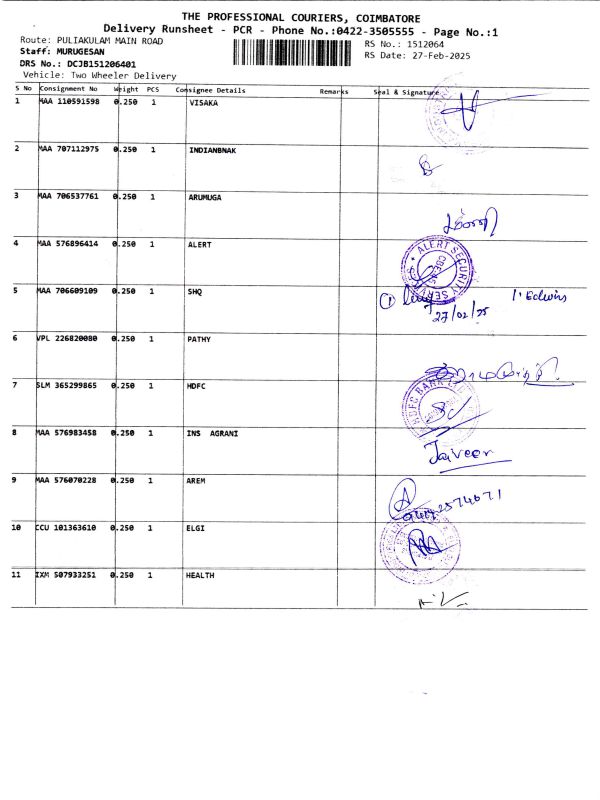 THE PROFESSIONAL COURIERS, COIMBATORE
Delivery Runsheet - PCR - Phone No.:0422-3505555 - Page No.:1
Route: PULIAKULAM MAIN ROAD
RS No.: 1512064
Staff: MURUGESAN
RS Date: 27-Feb-2025
DRS No.: DCJB151206401
Vehicle: Two Wheeler Delivery
S No Consignment No Weight PCS Consignee Details Remarks Seal & Signature
1 MAA 110591598 0.250 1 VISAKA
2 MAA 707112975 0.250 1 INDIANBNAK
3 MAA 706537761 0.250 1 ARUMUGA
4 MAA 576896414 0.250 1 ALERT
ALERT SECURITY
5 MAA 706609109 0.250 1 SHQ
27/02/25
6 VPL 226820080 0.250 1 PATHY
7 SLM 365299865 0.250 1 HDFC
HDFC BANK
8 MAA 576983458 0.250 1 INS AGRANI
Jaiveer
9 MAA 576070228 0.250 1 AREM
10 CCU 101363610 0.250 1 ELGI
11 IXM 507933251 0.250 1 HEALTH